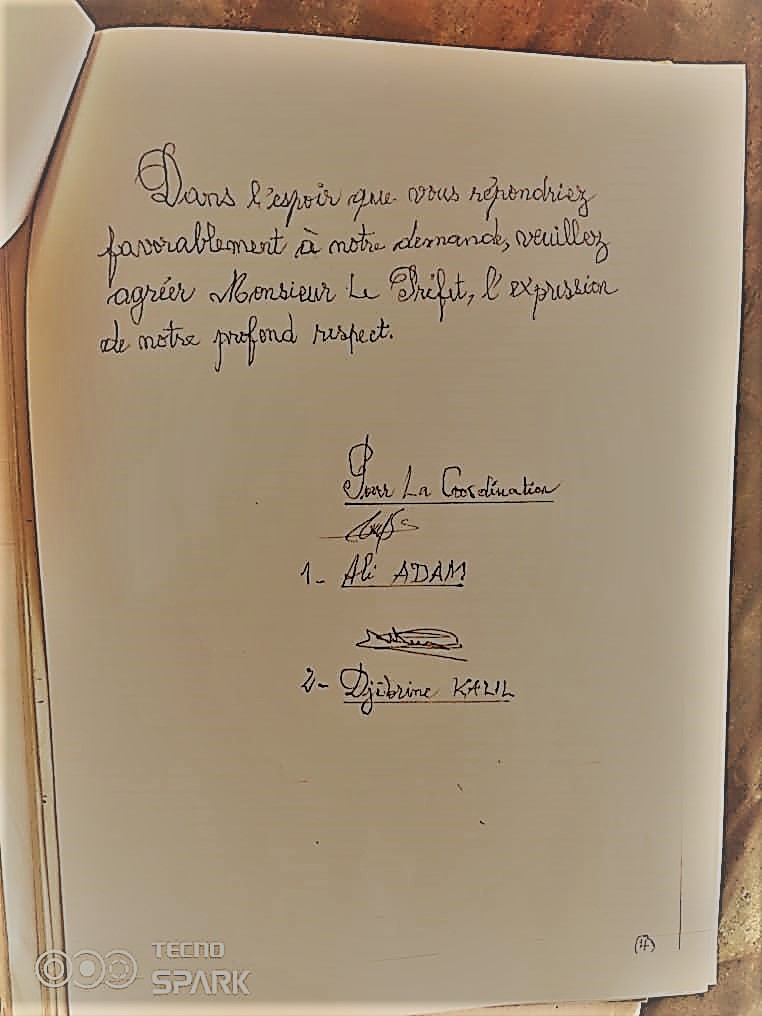 Dans l'espoir que vous répondriez
favorablement à notre demande, veuillez
agréer Monsieur Le Préfet, l'expression
de notre profond respect.
Pour La Coordination
1- Ali ADAM
2- Djibrine KALIL
TECNO
SPARK